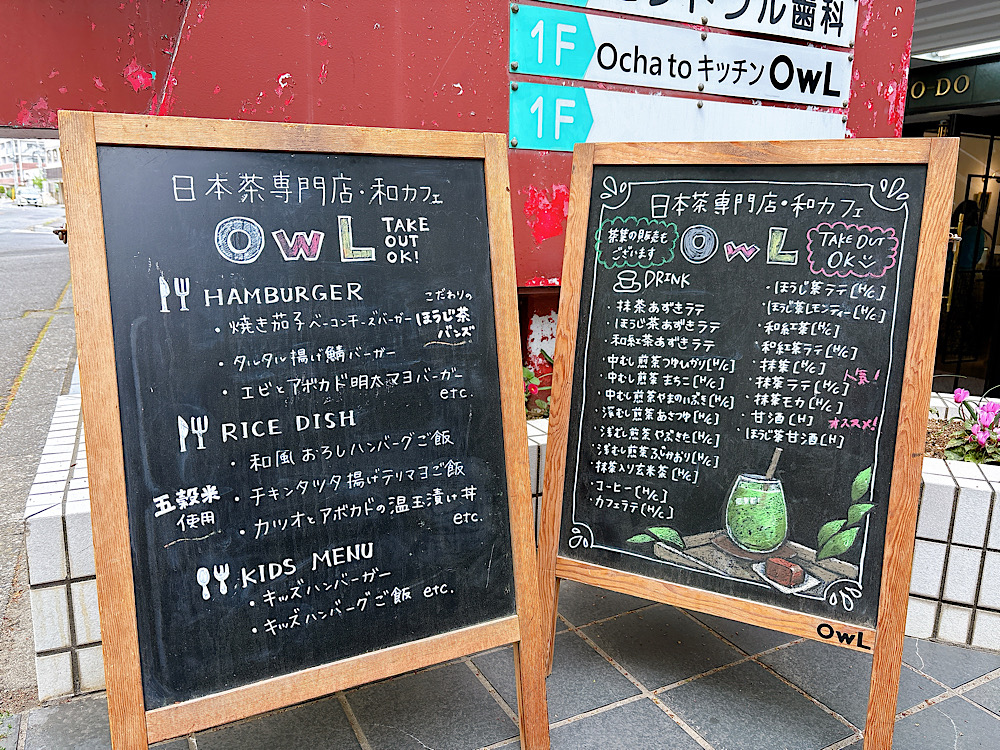 1F
Ocha to キッチン OwL
1F
O DO
日本茶専門店・和カフェ
OwL
TAKE OUT OK!
HAMBURGER
こだわりの
ほうじ茶
バンズ
・焼き茄子ベーコンチーズバーガー
・タルタル揚げ鯖バーガー
・エビとアボカド明太マヨバーガー
etc.
RICE DISH
・和風おろしハンバーグご飯
五穀米
使用
・チキンタツタ揚げテリマヨご飯
・カツオとアボカドの温玉漬け丼
etc.
KIDS MENU
・キッズハンバーガー
・キッズハンバーグご飯 etc.
日本茶専門店・和カフェ
茶葉の販売も
ございます
OwL
TAKE OUT
OK
DRINK
・抹茶あずきラテ
・ほうじ茶あずきラテ
・和紅茶あずきラテ
・中むし煎茶つゆひかり[H/C]
・中むし煎茶まちこ[H/C]
・中むし煎茶やまのいぶき[H/C]
・深むし煎茶あさつゆ[H/C]
・浅むし煎茶やぶきた[H/C]
・浅むし煎茶ふじかおり[H/C]
・抹茶入り玄米茶[H/C]
・コーヒー[H/C]
・カフェラテ[H/C]
・ほうじ茶ラテ[H/C]
・ほうじ茶レモンティー[H/C]
・和紅茶[H/C]
・和紅茶ラテ[H/C]
・抹茶[H/C]
・抹茶ラテ[H/C]
人気!
・抹茶モカ[H/C]
・甘酒[H]
オススメ!
・ほうじ茶甘酒[H]
OwL